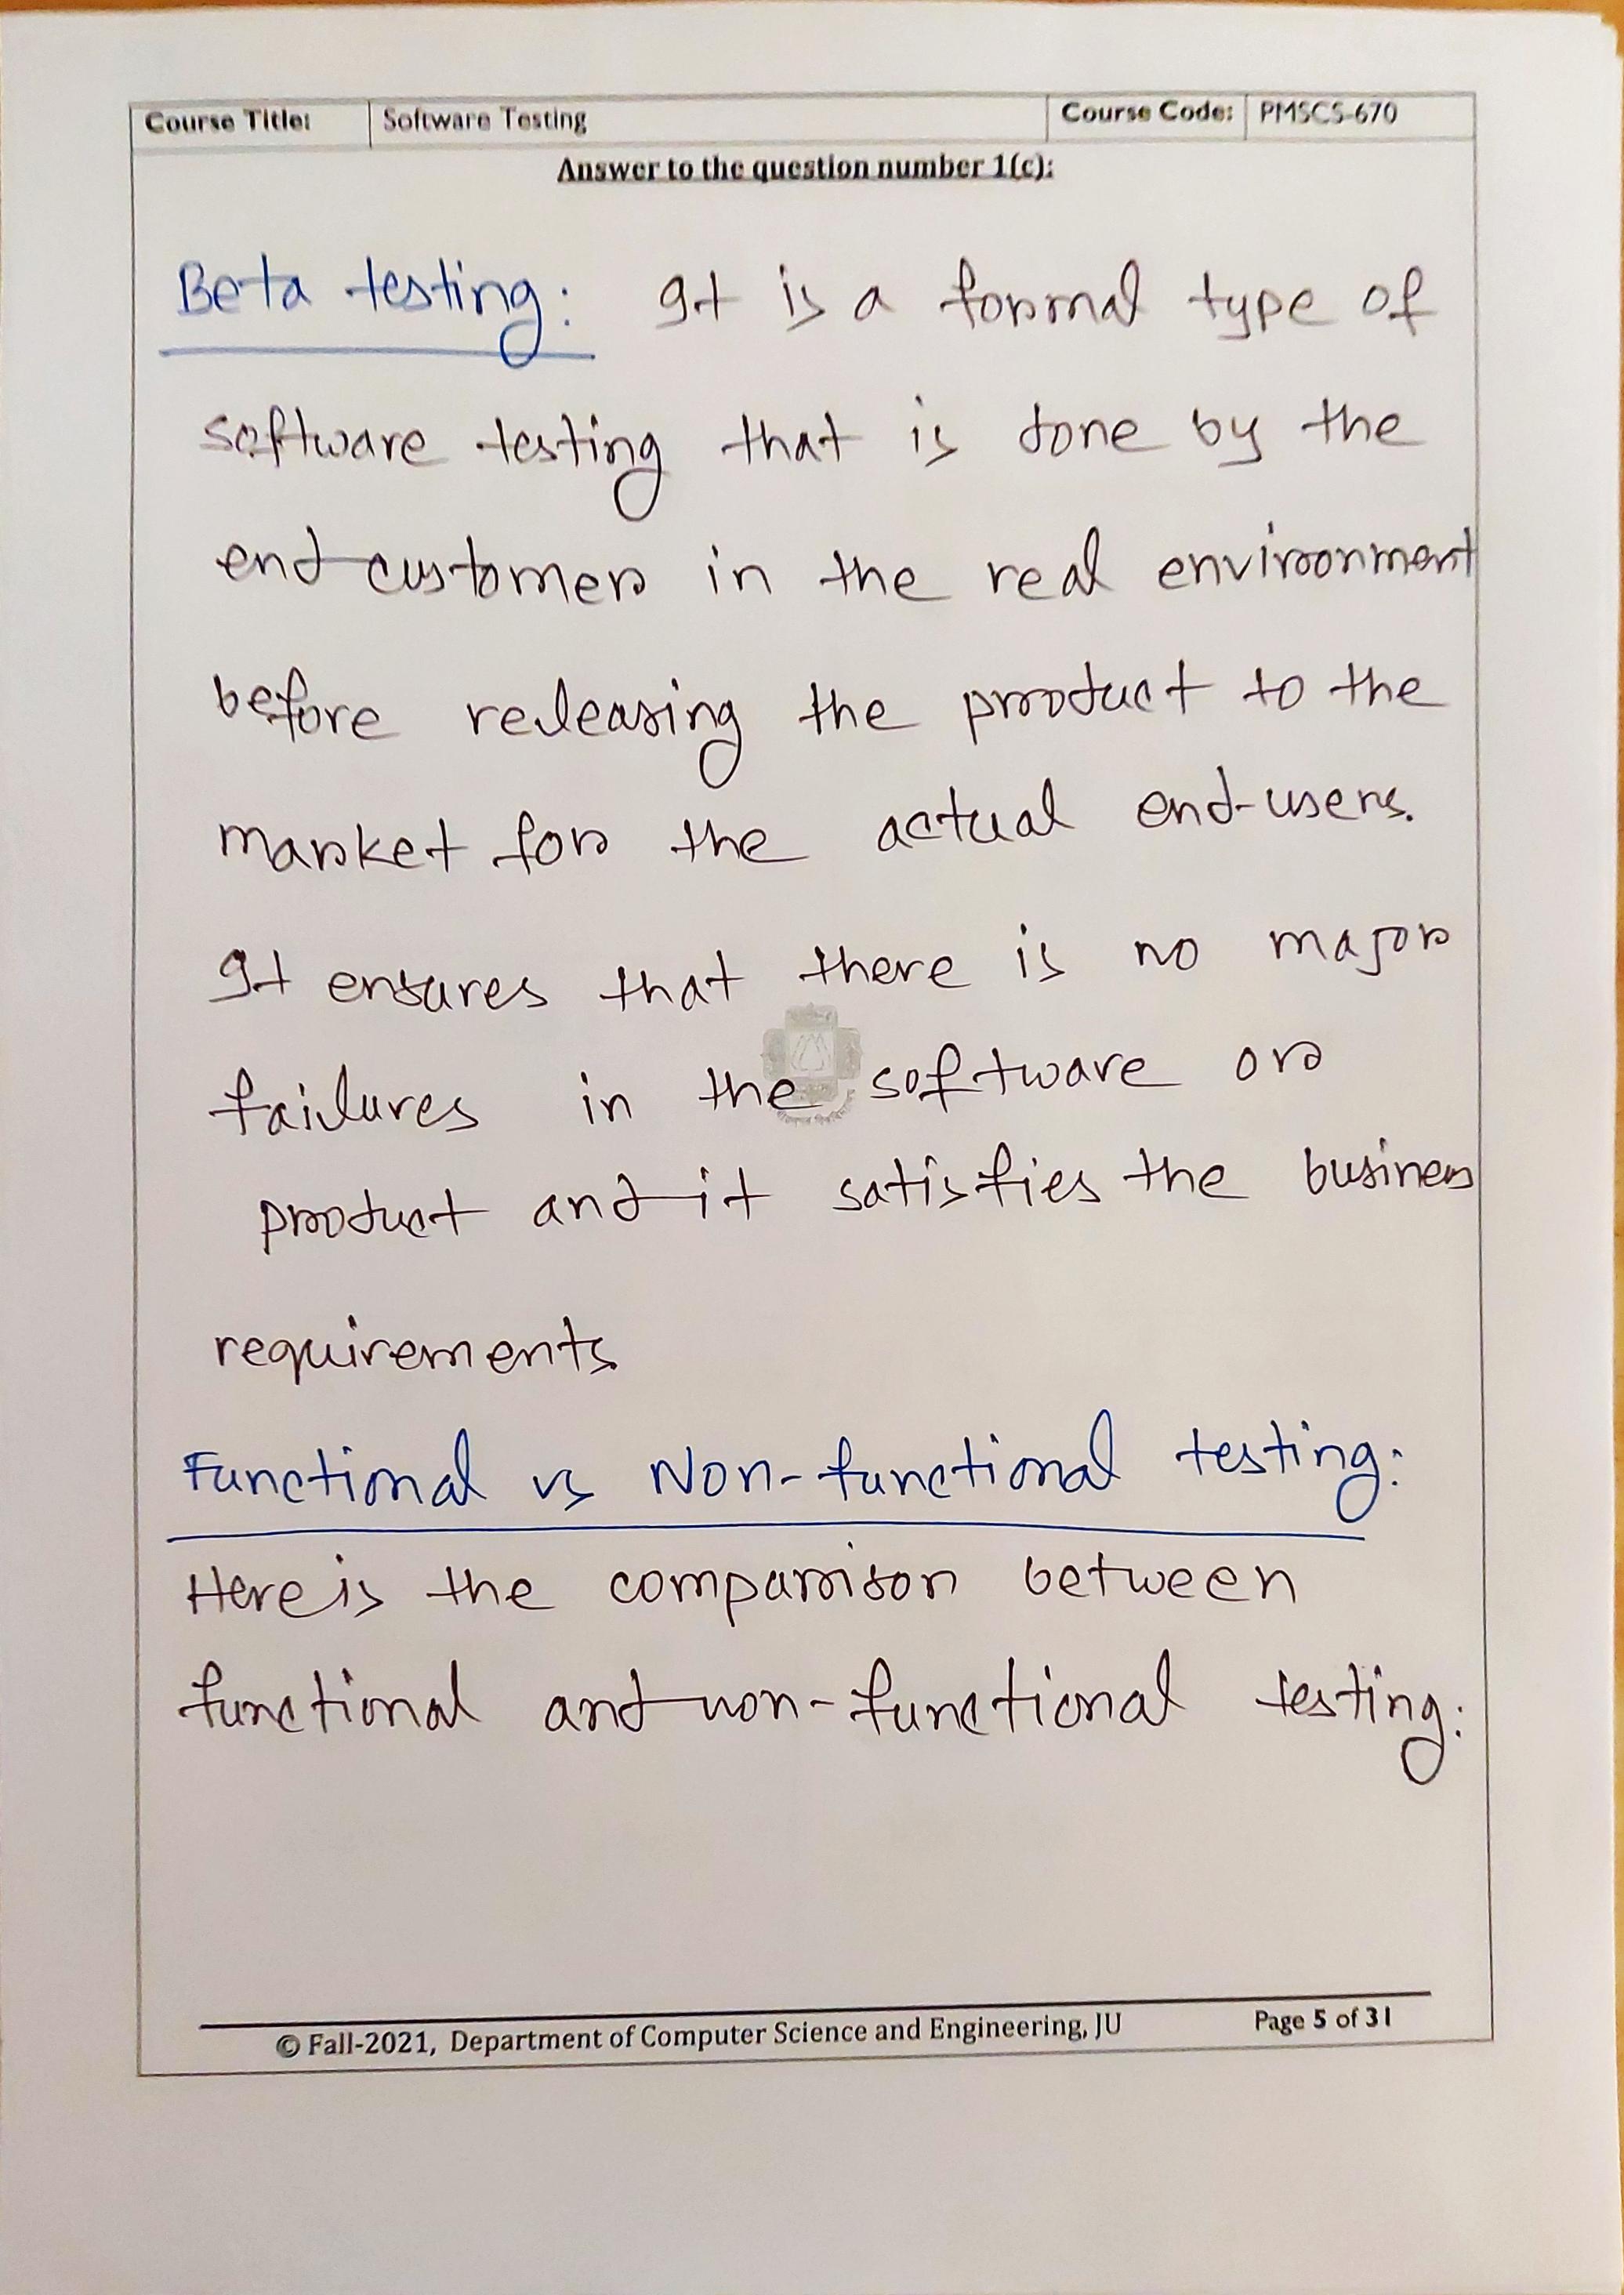 Course Title: Software Testing Course Code: PMSCS-670
Answer to the question number 1(c):
Beta testing: It is a formal type of
software testing that is done by the
end customer in the real environment
before releasing the product to the
market for the actual end-users.
It ensures that there is no major
failures in the software or
product and it satisfies the business
requirements
Functional vs Non-functional testing:
Here is the comparison between
functional and non-functional testing:
© Fall-2021, Department of Computer Science and Engineering, JU Page 5 of 31